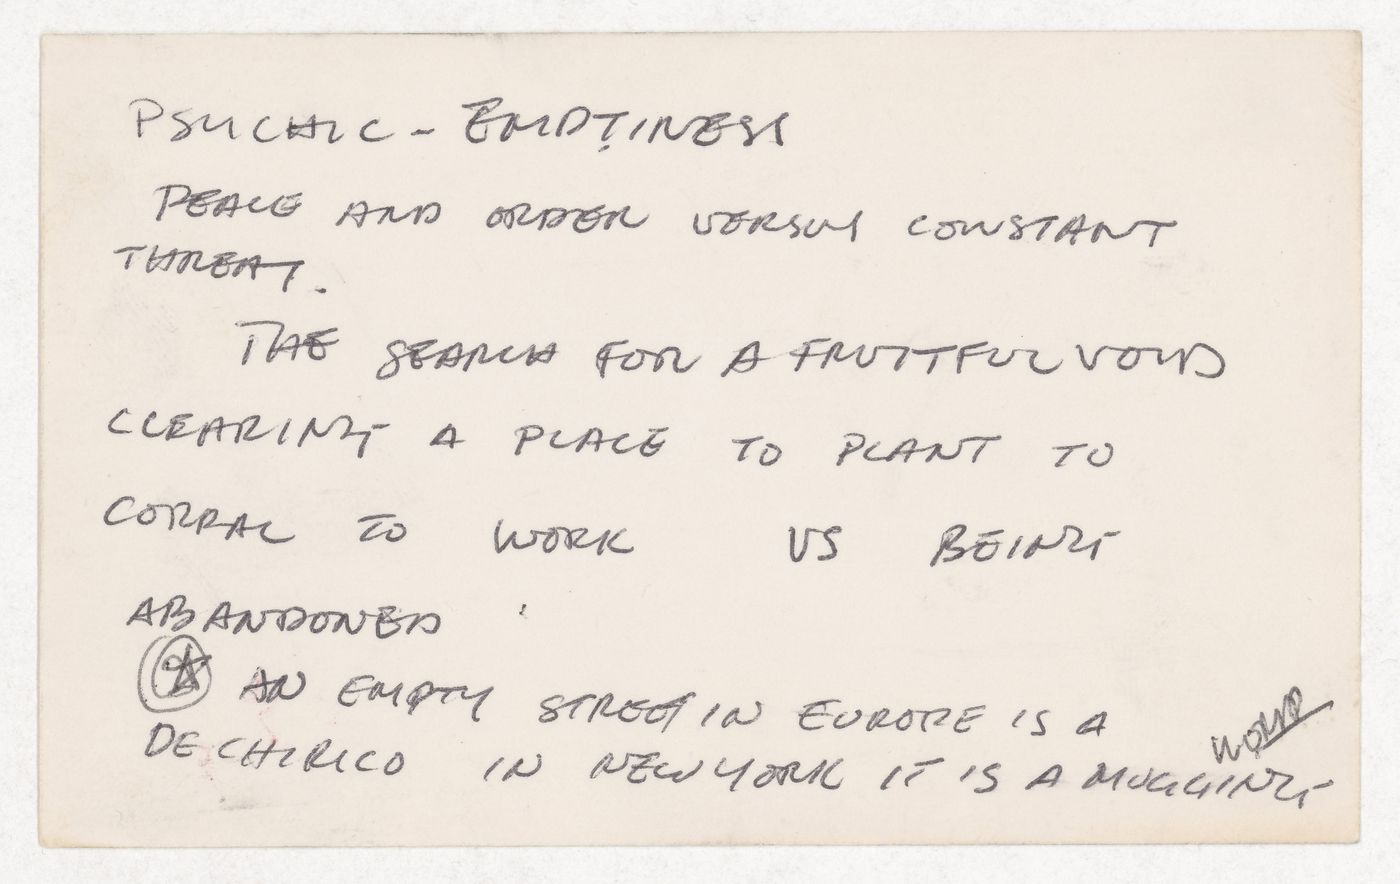 PSYCHIC - EMPTINESS
PEACE AND ORDER VERSUS CONSTANT
THREAT.
THE SEARCH FOR A FRUITFUL VOID
CLEARING A PLACE TO PLANT TO
CORRAL TO WORK VS BEING
ABANDONED
AN EMPTY STREET IN EUROPE IS A
DE CHIRICO IN NEW YORK IT IS A MUGGING